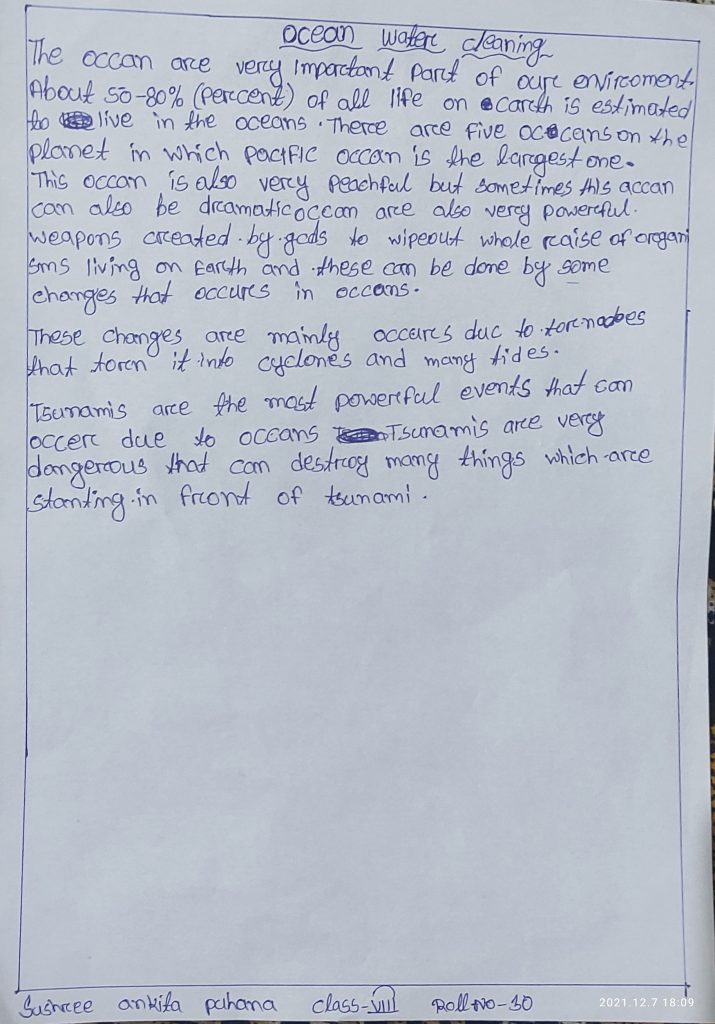 ocean water cleaning
The occan are very important part of our enviroment.
About 50-80% (percent) of all life on earth is estimated
to live in the oceans. There are five ococans on the
planet in which pacific occan is the largest one.
This occan is also very peachful but sometimes this accan
can also be dramatic occan are also very powerful.
weapons created by gods to wipeout whole raise of organi
sms living on Earth and these can be done by some
changes that occurs in occans.
These changes are mainly occurs duc to tornadoes
that torn it into cyclones and many tides.
Tsunamis are the most powerful events that can
occer due to occans Tsunamis are very
dangerous that can destroy many things which are
standing in front of tsunami.
Sushree ankita pahana class-VIII Roll no-30
2021.12.7 18:09